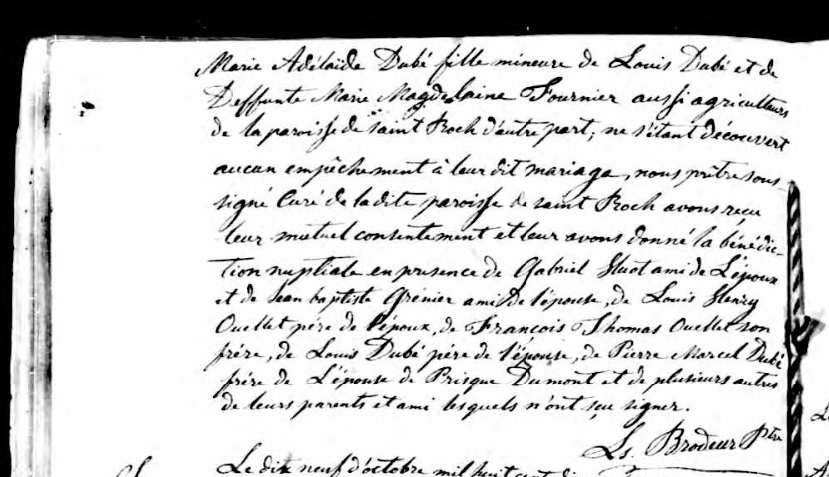 Marie Adélaïde Dubé fille mineure de Louis Dubé et de
Deffunte Marie Magdelaine Fournier aussi agriculteurs
de la paroisse de saint Roch d'autre part; ne s'étant découvert
aucun empêchement à leur dit mariage, nous prêtre sous-
signé Curé de la dite paroisse de saint Roch avons reçu
leur mutuel consentement et leur avons donné la bénédic-
tion nuptiale en presence de Gabriel Huot ami de L'époux
et de Jean baptiste Grénier ami de l'épouse, de Louis Henry
Ouellet pére de l'époux, de François Thomas Ouellet son
frére, de Louis Dubé pére de l'épouse, de Pierre Marcel Dubé
frére de L'épouse de Prisque Dumont et de plusieurs autres
de leurs parents et ami lesquels n'ont sçu signer.
Ls. Brodeur Ptre
Le dix neuf d'octobre mil huit cent